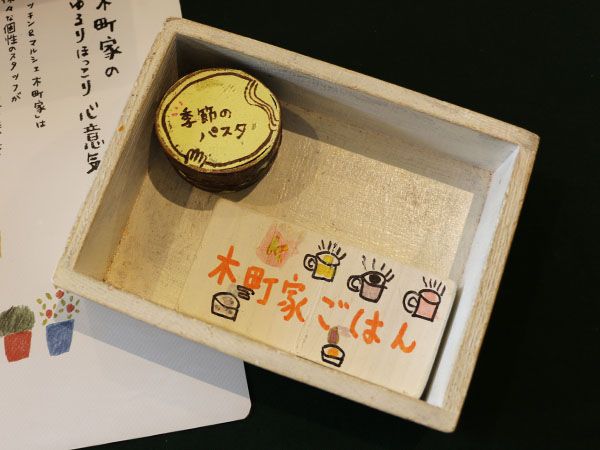 木町家の
ゆるりほっこり心意気
ッチン&マルシェ木町家」は
々な個性のスタッフが
季節の
パスタ
木町家ごはん